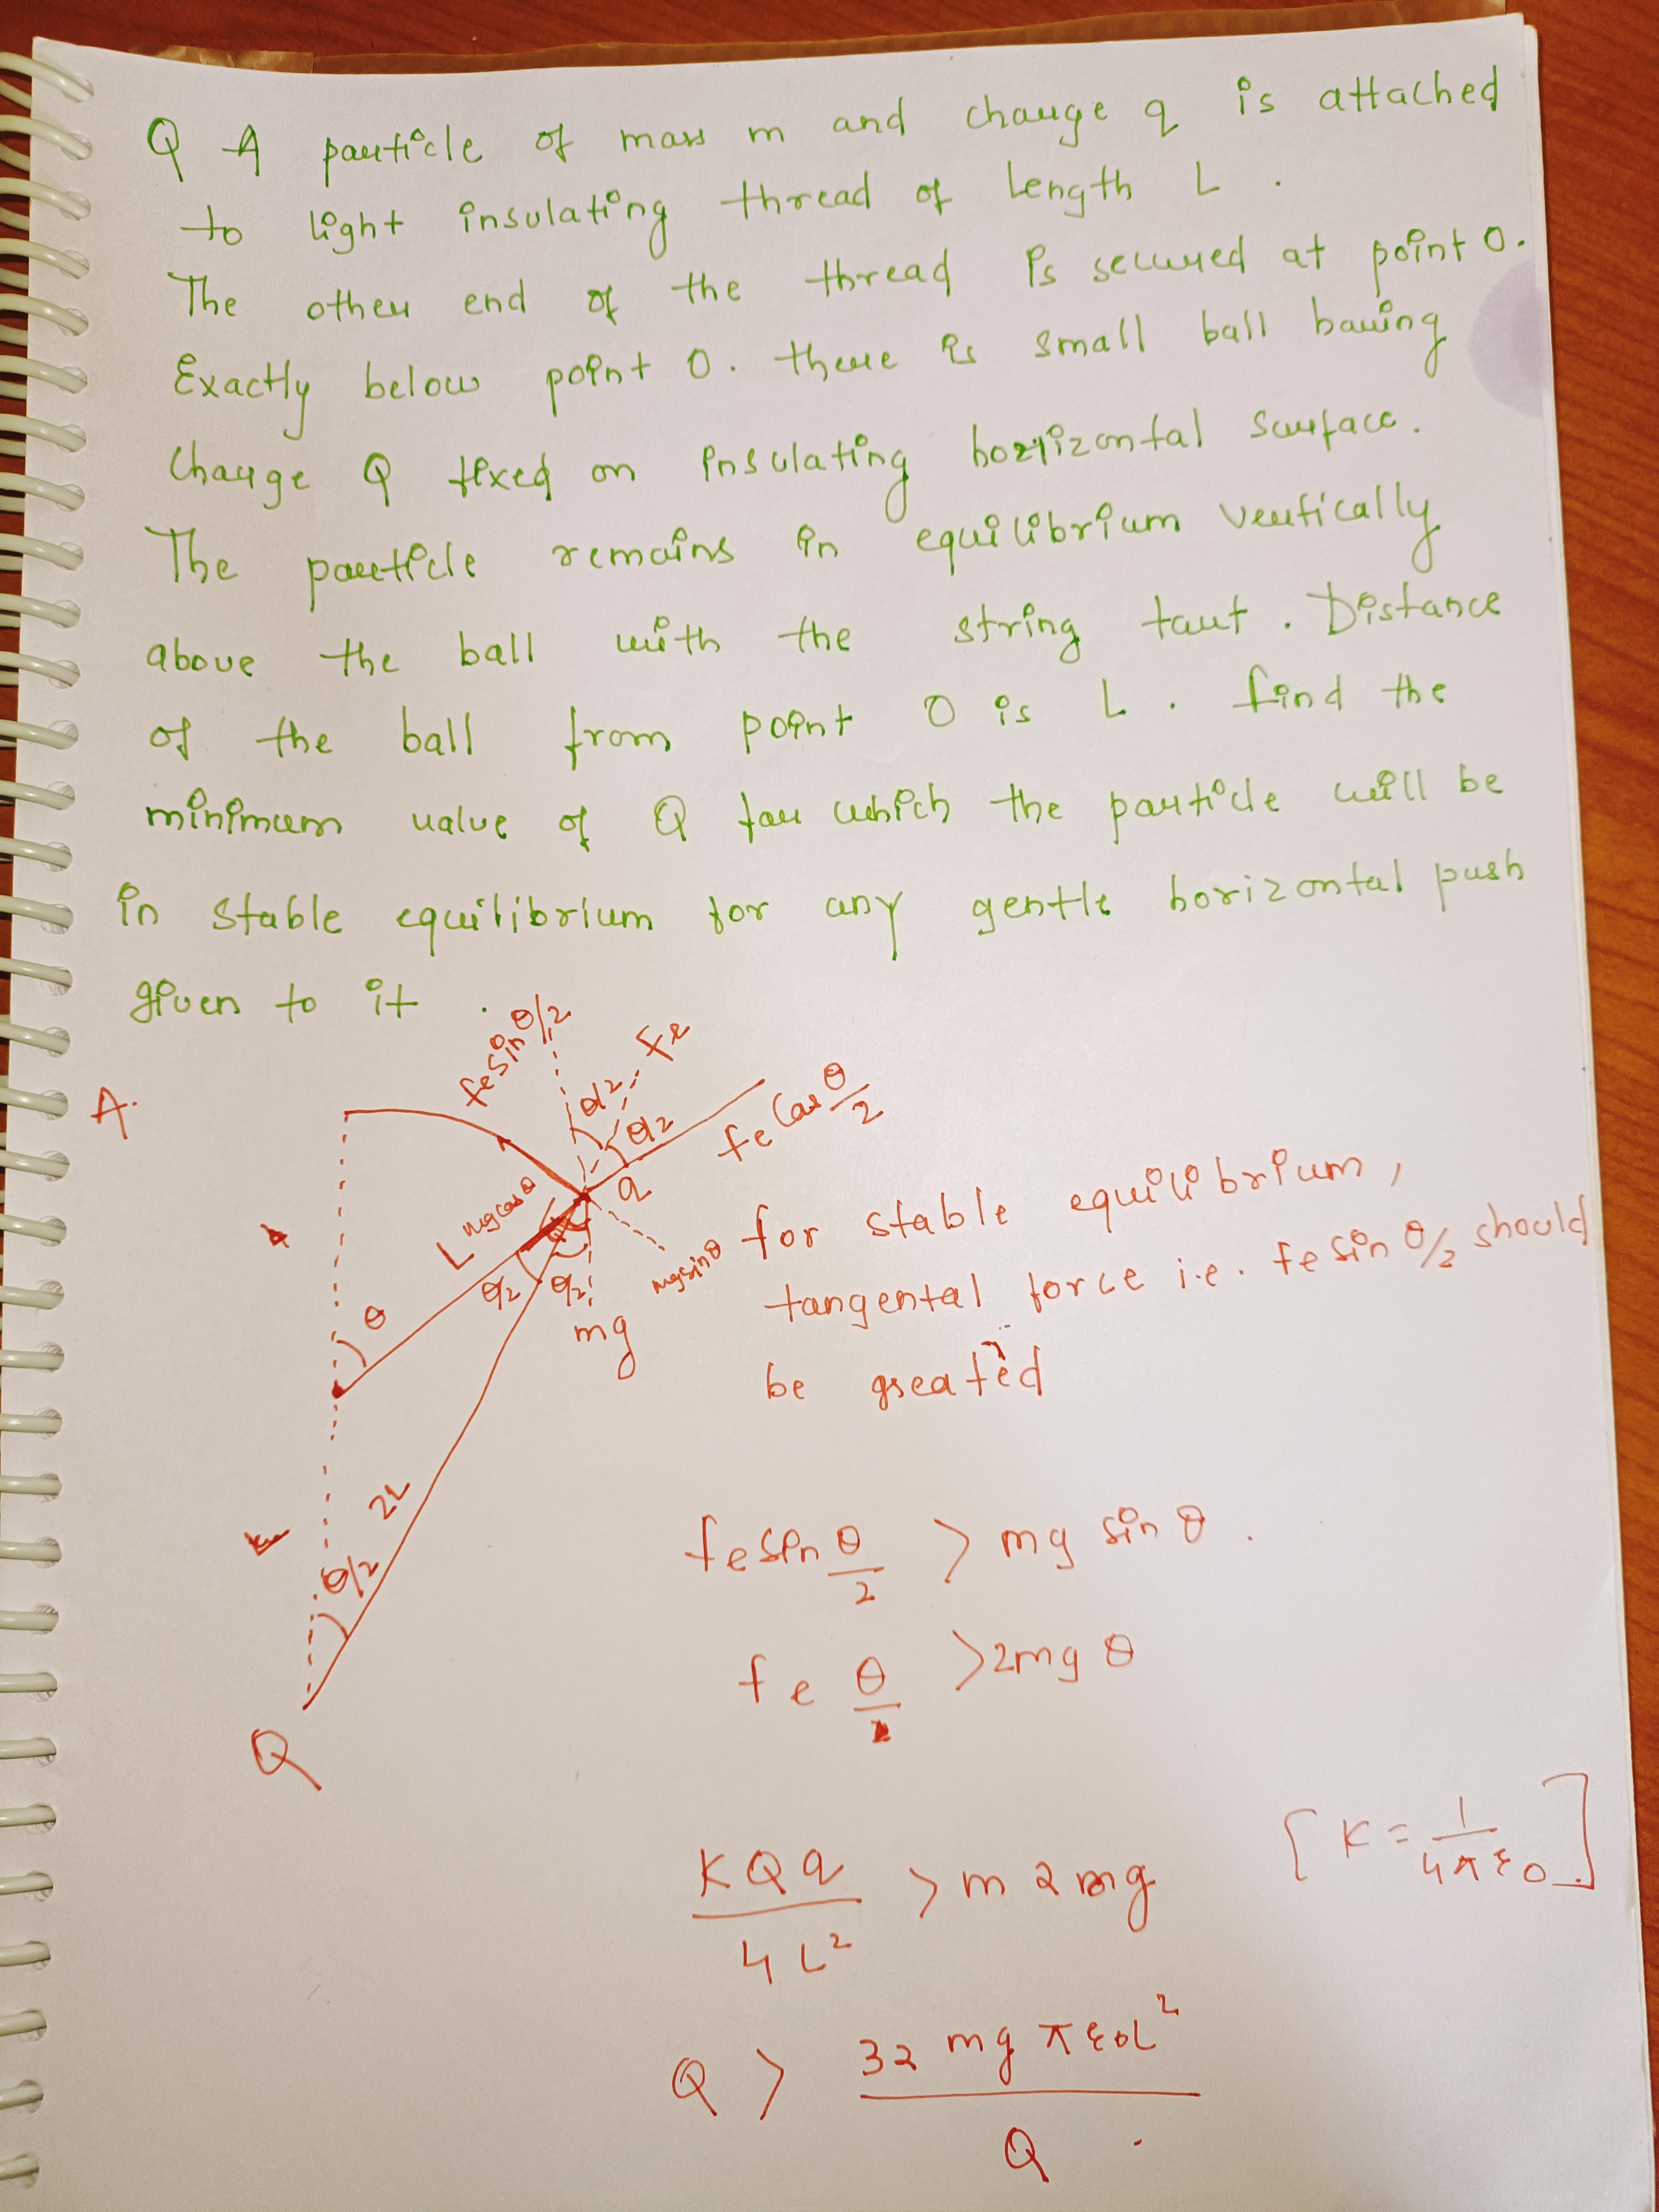 Q A particle of mass m and charge q is attached
to light insulating thread of length L.
The other end of the thread is secured at point O.
Exactly below point O. there is small ball having
charge Q fixed on insulating horizontal surface.
The particle remains in equilibrium vertically
above the ball with the string taut. Distance
of the ball from point O is L. find the
minimum value of Q for which the particle will be
in stable equilibrium for any gentle horizontal push
given to it.
A.
fe sin θ/2
fe
θ/2
θ/2
fe cos θ/2
q
mg cos θ
L
mg sin θ
θ/2 θ/2
mg
θ
2L
θ/2
Q
for stable equilibrium,
tangental force i.e. fe sin θ/2 should
be greated
fe sin θ/2 > mg sin θ.
fe θ > 2mg θ
KQq / 4L² > m 2mg [K = 1/4πε0.]
Q > 32 mg πε0L² / Q.